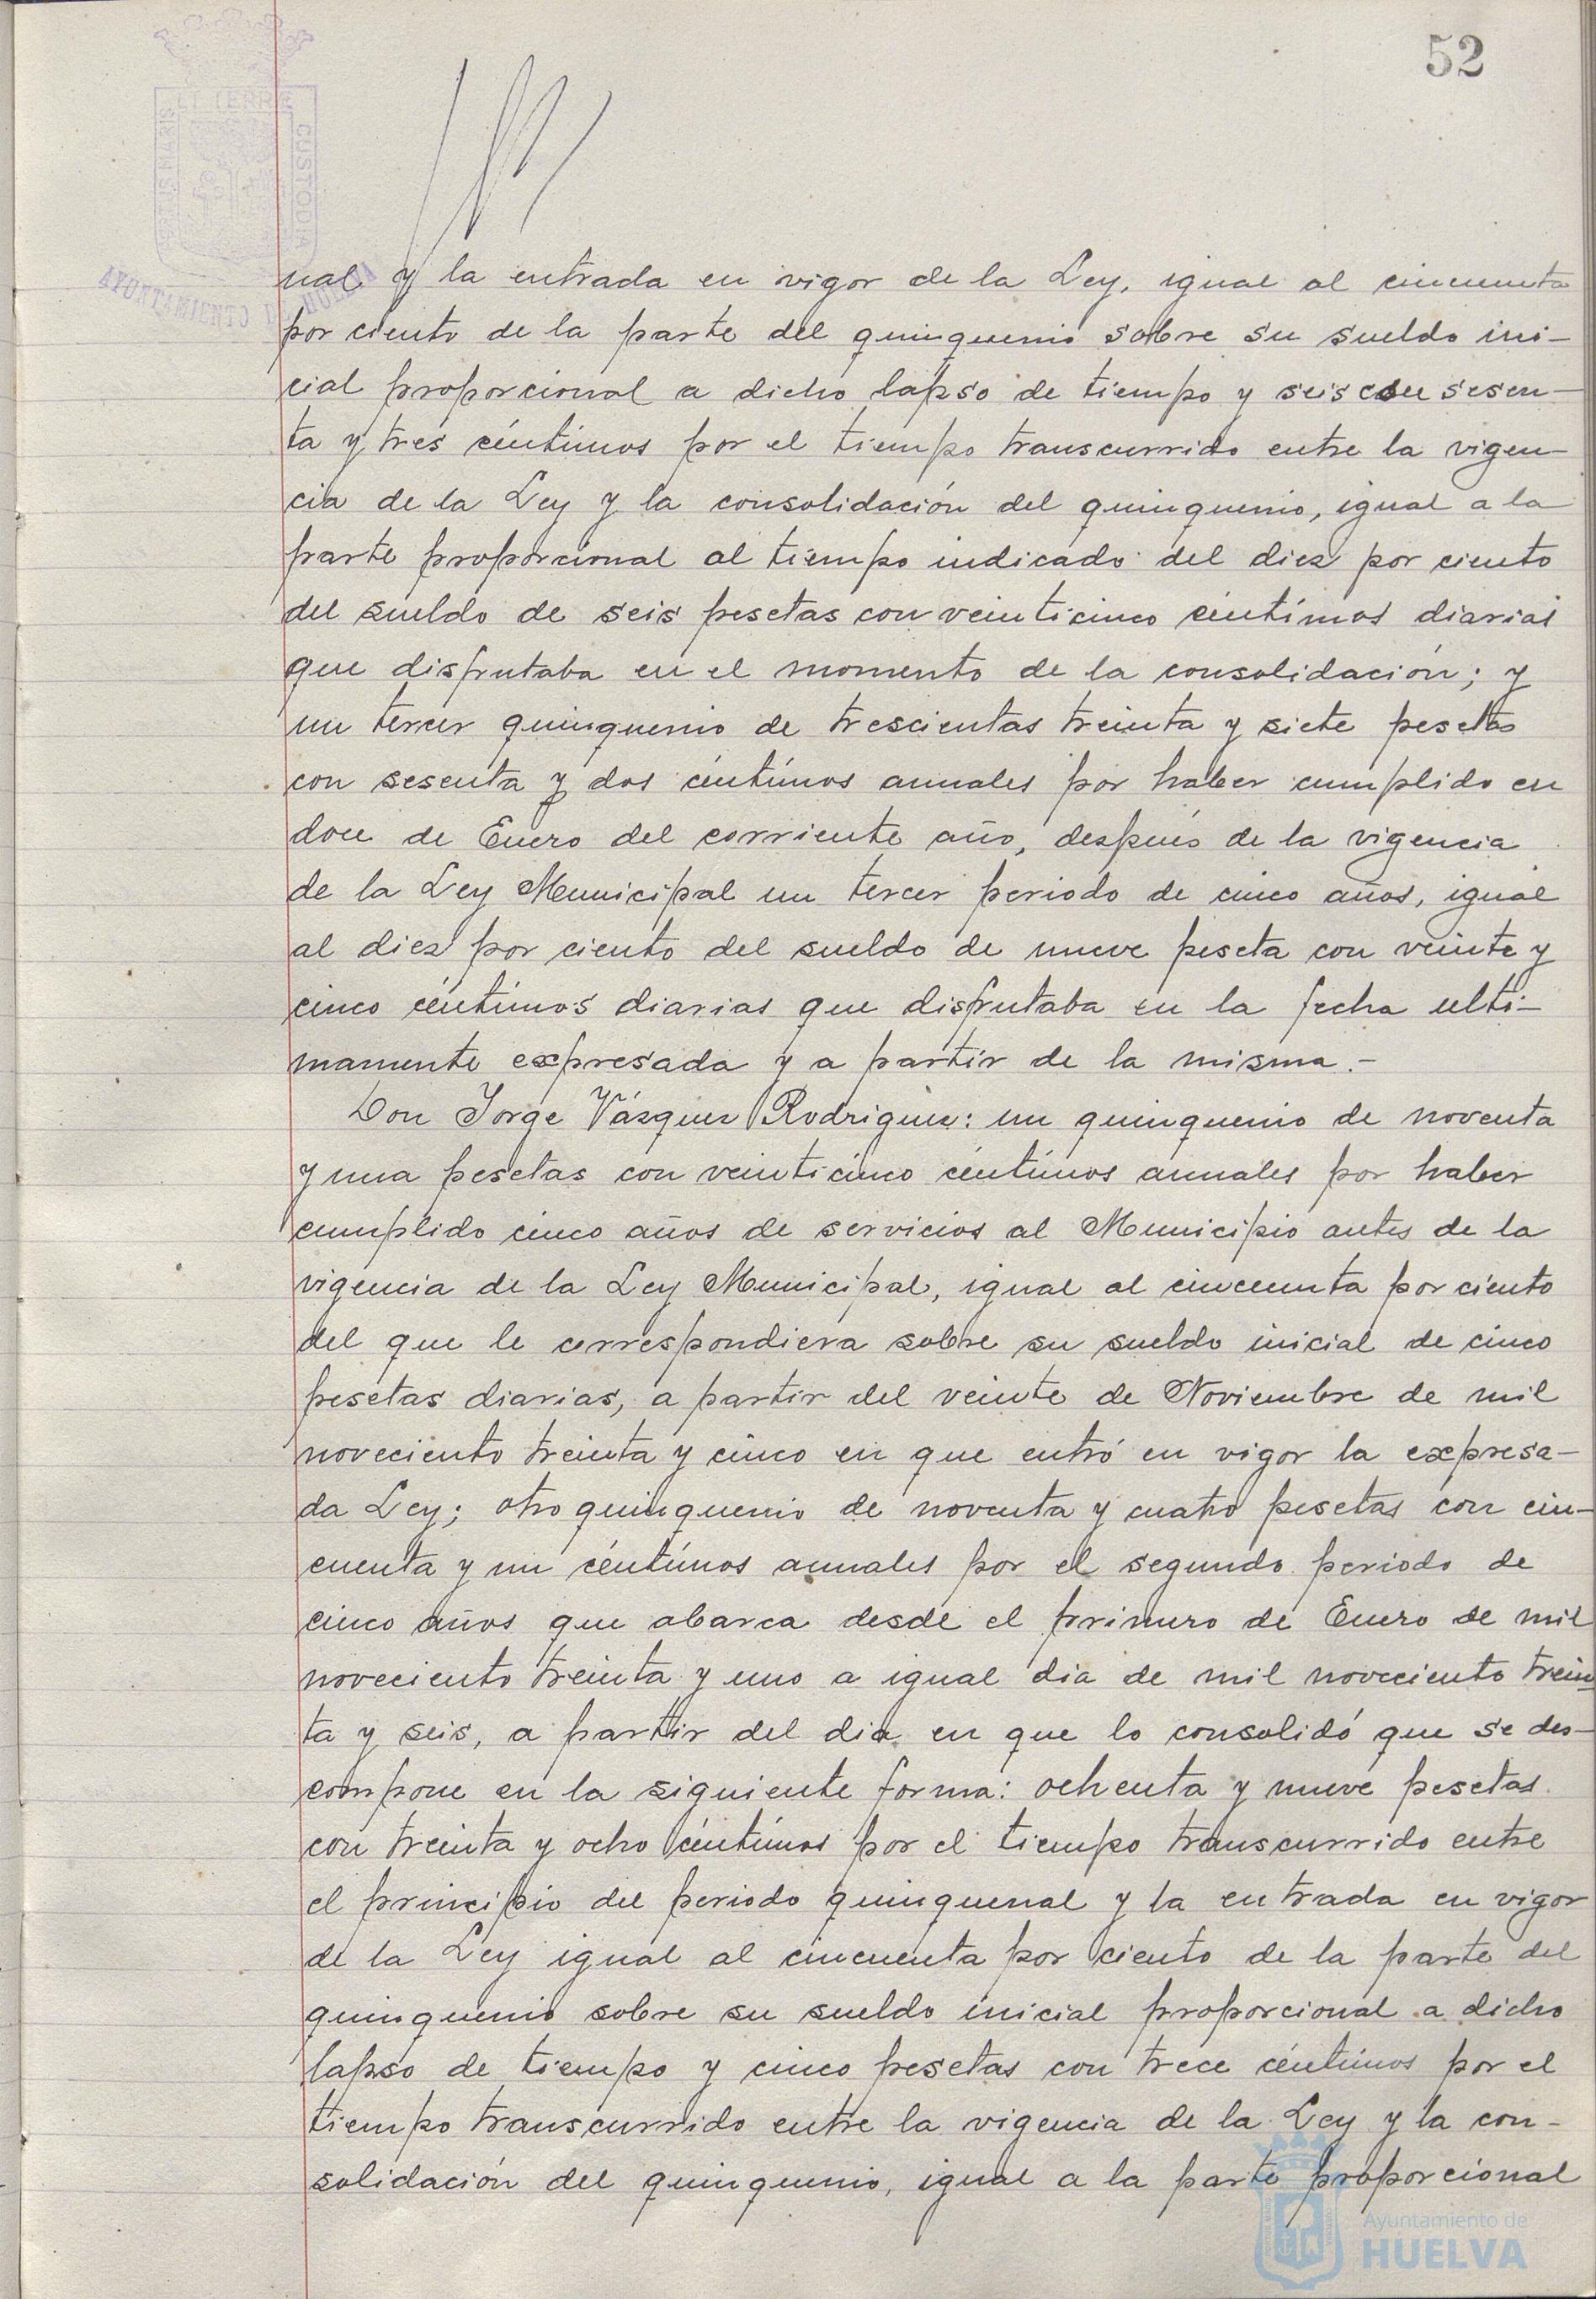 52
ET TERRE
CUSTODIA
PORTUS MARIS
AYUNTAMIENTO DE HUELVA
nal y la entrada en vigor de la Ley, igual al cincuenta
por ciento de la parte del quinquenio sobre su sueldo ini-
cial proporcional a dicho lapso de tiempo y seis con sesen-
ta y tres céntimos por el tiempo transcurrido entre la vigen-
cia de la Ley y la consolidación del quinquenio, igual a la
parte proporcional al tiempo indicado del diez por ciento
del sueldo de seis pesetas con veinticinco céntimos diarias
que disfrutaba en el momento de la consolidación; y
un tercer quinquenio de trescientas treinta y siete pesetas
con sesenta y dos céntimos anuales por haber cumplido en
doce de Enero del corriente año, después de la vigencia
de la Ley Municipal un tercer periodo de cinco años, igual
al diez por ciento del sueldo de nueve peseta con veinte y
cinco céntimos diarias que disfrutaba en la fecha ulti-
mamente expresada y a partir de la misma.-
Don Jorge Vázquez Rodriguez: un quinquenio de noventa
y una pesetas con veinticinco céntimos anuales por haber
cumplido cinco años de servicios al Municipio antes de la
vigencia de la Ley Municipal, igual al cincuenta por ciento
del que le correspondiera sobre su sueldo inicial de cinco
pesetas diarias, a partir del veinte de Noviembre de mil
noveciento treinta y cinco en que entró en vigor la expresa-
da Ley; otro quinquenio de noventa y cuatro pesetas con cin-
cuenta y un céntimos anuales por el segundo periodo de
cinco años que abarca desde el primero de Enero de mil
noveciento treinta y uno a igual dia de mil noveciento trein-
ta y seis, a partir del dia en que lo consolidó que se des-
compone en la siguiente forma: ochenta y nueve pesetas
con treinta y ocho céntimos por el tiempo transcurrido entre
el principio del periodo quinquenal y la entrada en vigor
de la Ley igual al cincuenta por ciento de la parte del
quinquenio sobre su sueldo inicial proporcional a dicho
lapso de tiempo y cinco pesetas con trece céntimos por el
tiempo transcurrido entre la vigencia de la Ley y la con-
solidación del quinquenio, igual a la parte proporcional
Ayuntamiento de
HUELVA